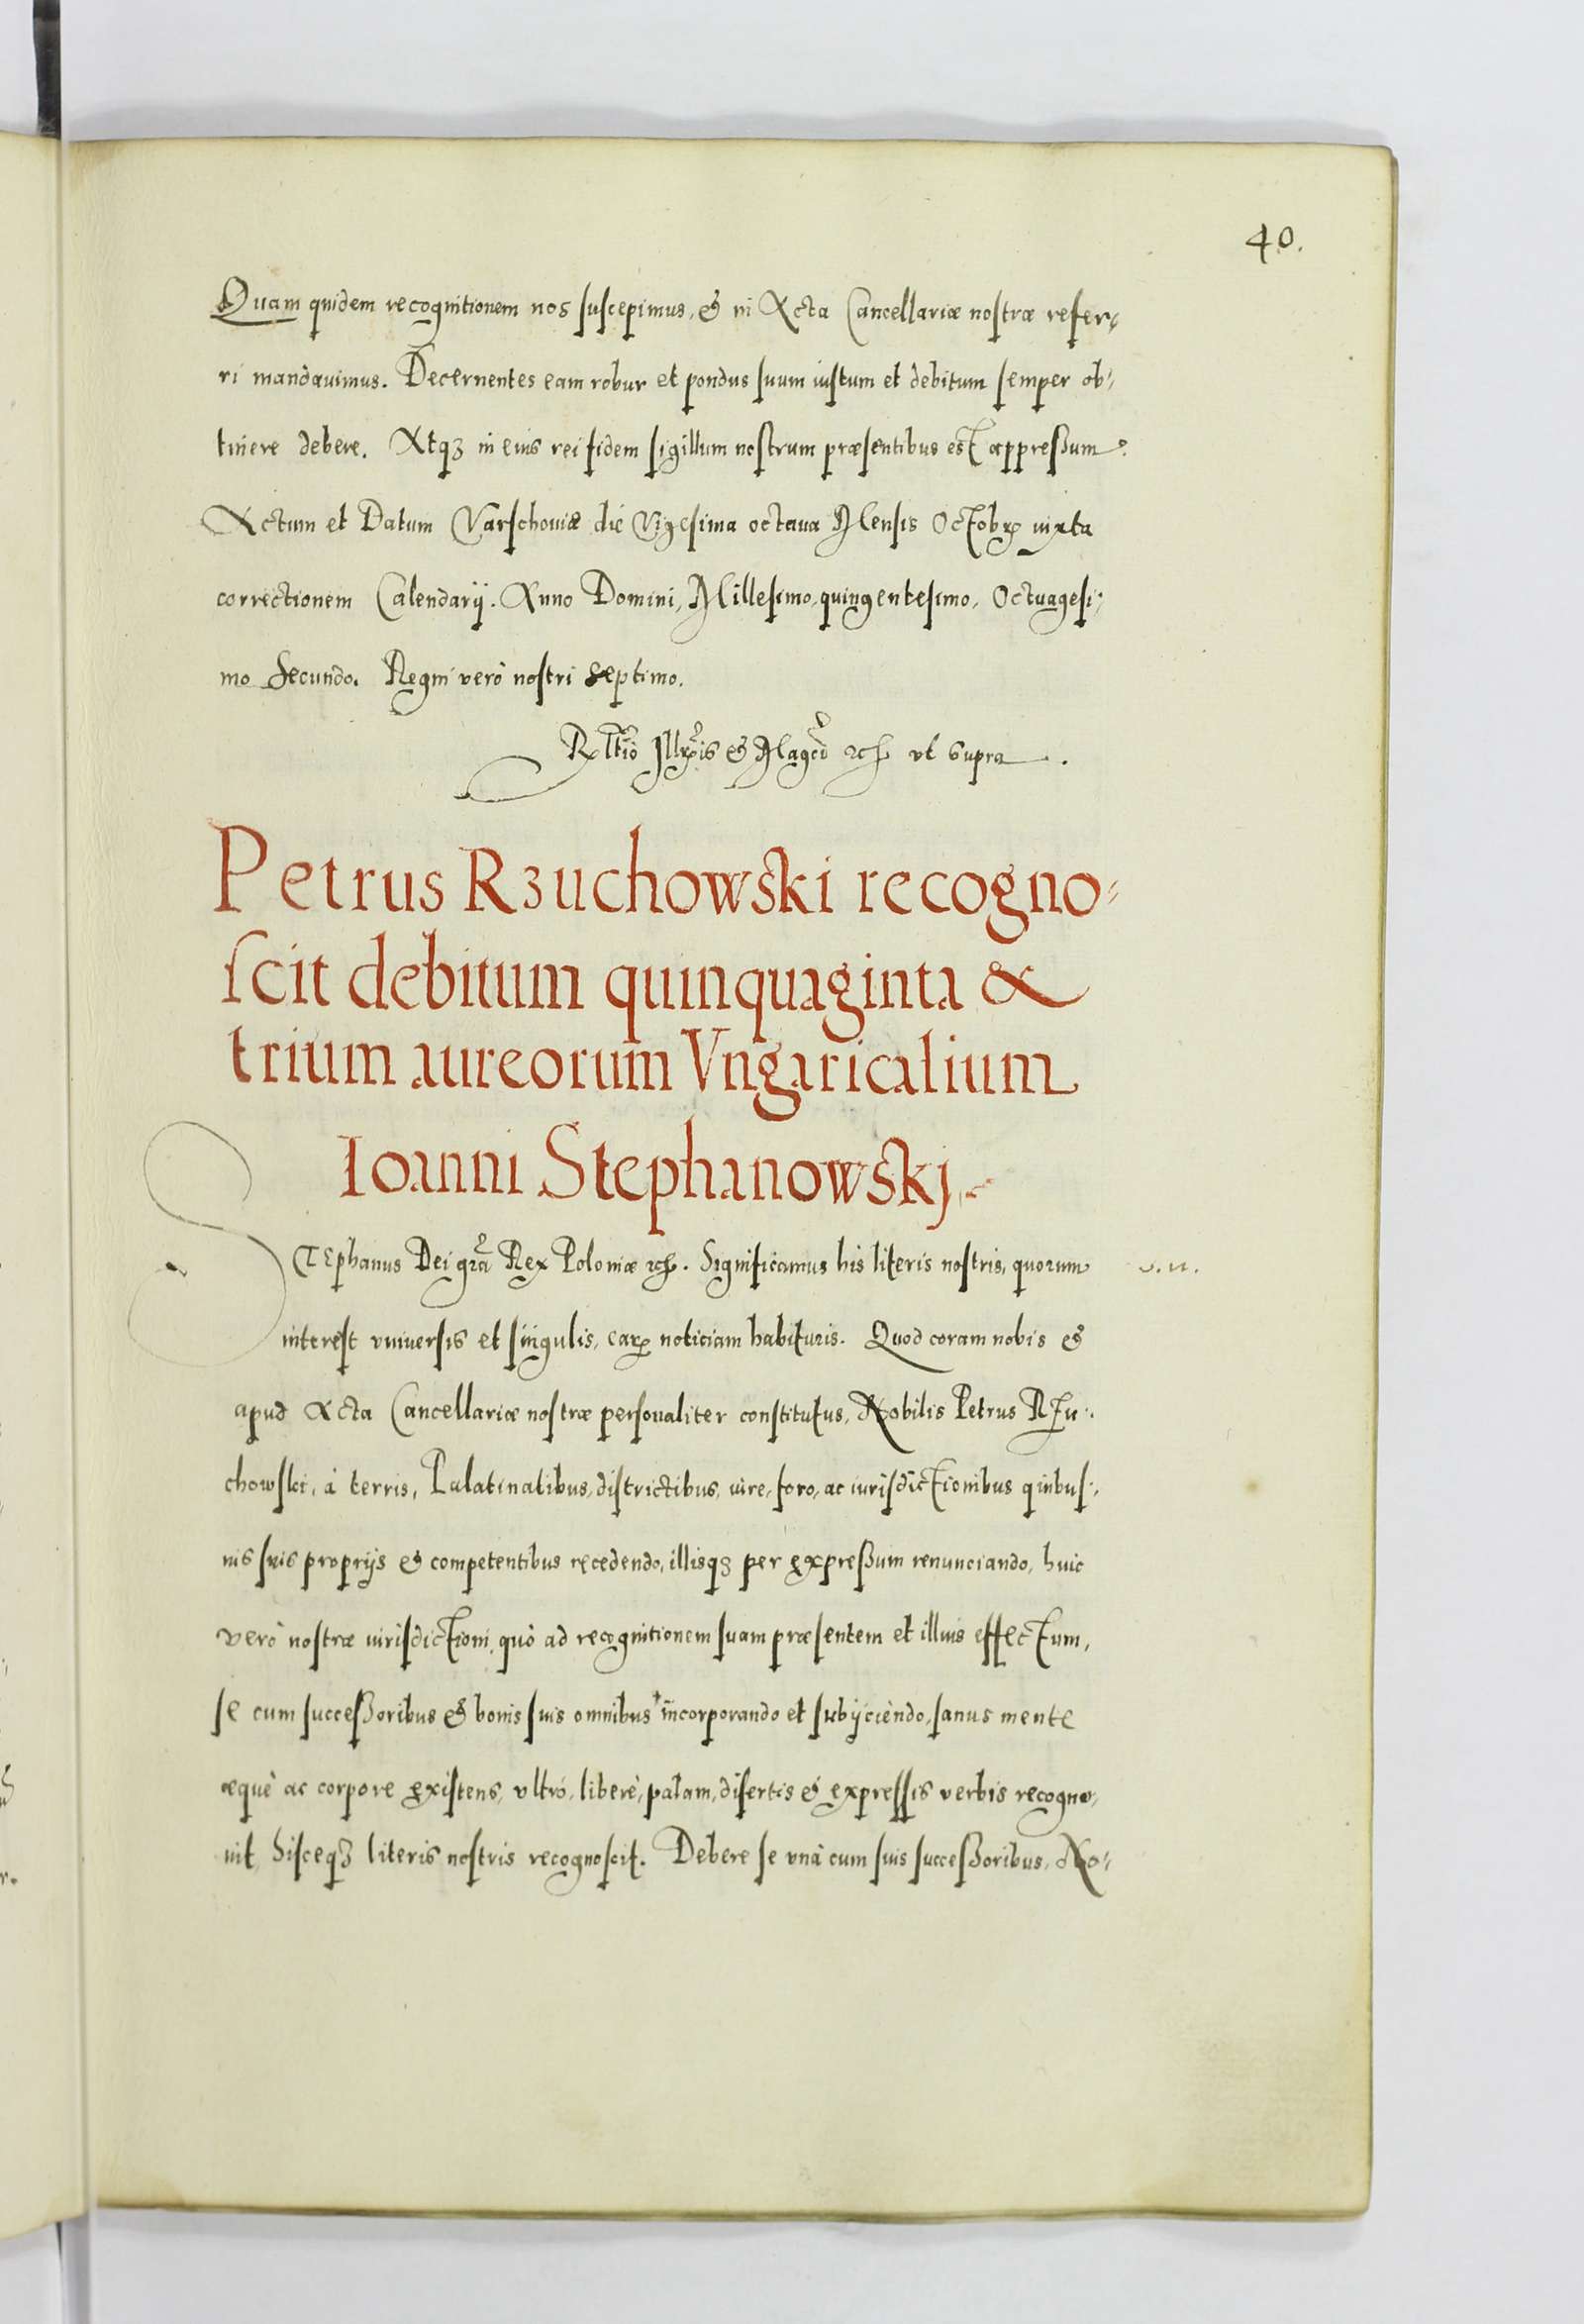 40.
Quam quidem recognitionem nos suscepimus, & in Acta Cancellariæ nostræ refer⸗
ri mandauimus. Decernentes eam robur et pondus suum iustum et debitum semper ob⸗
tinere debere. Atqꝫ in eius rei fidem sigillum nostrum præsentibus est appressum.
Actum et Datum Varschouiæ die Vigesima octaua Mensis Octobrꝭ iuxta
correctionem Calendarij. Anno Domini, Millesimo, quingentesimo, Octuagesi⸗
mo Secundo. Regni verò nostri septimo.
ut supra.
Petrus Rzuchowski recogno⸗
scit debitum quinquaginta &
trium aureorum Vngaricalium
Ioanni Stephanowskj.
STephanus Dei gra Rex Poloniæ etc. Significamus his literis nostris, quorum
interest vniuersis et singulis, earꝝ noticiam habituris. Quod coram nobis &
apud Acta Cancellariæ nostræ personaliter constitutus, Nobilis Petrus Rzu⸗
chowski, à terris, Palatinatibus, districtibus, iure, foro, ac iurisdictionibus quibus⸗
uis suis proprijs & competentibus recedendo, illisqꝫ per expressum renunciando, huic
verò nostræ iurisdictioni, quò ad recognitionem suam præsentem et illius effectum,
se cum successoribus & bonis suis omnibus incorporando et subijciendo, sanus mente
æquè ac corpore existens, vltrò, liberè, palam, disertis & expressis verbis recogno⸗
uit, hisceqꝫ literis nostris recognoscit. Debere se vnà cum suis successoribus, No⸗